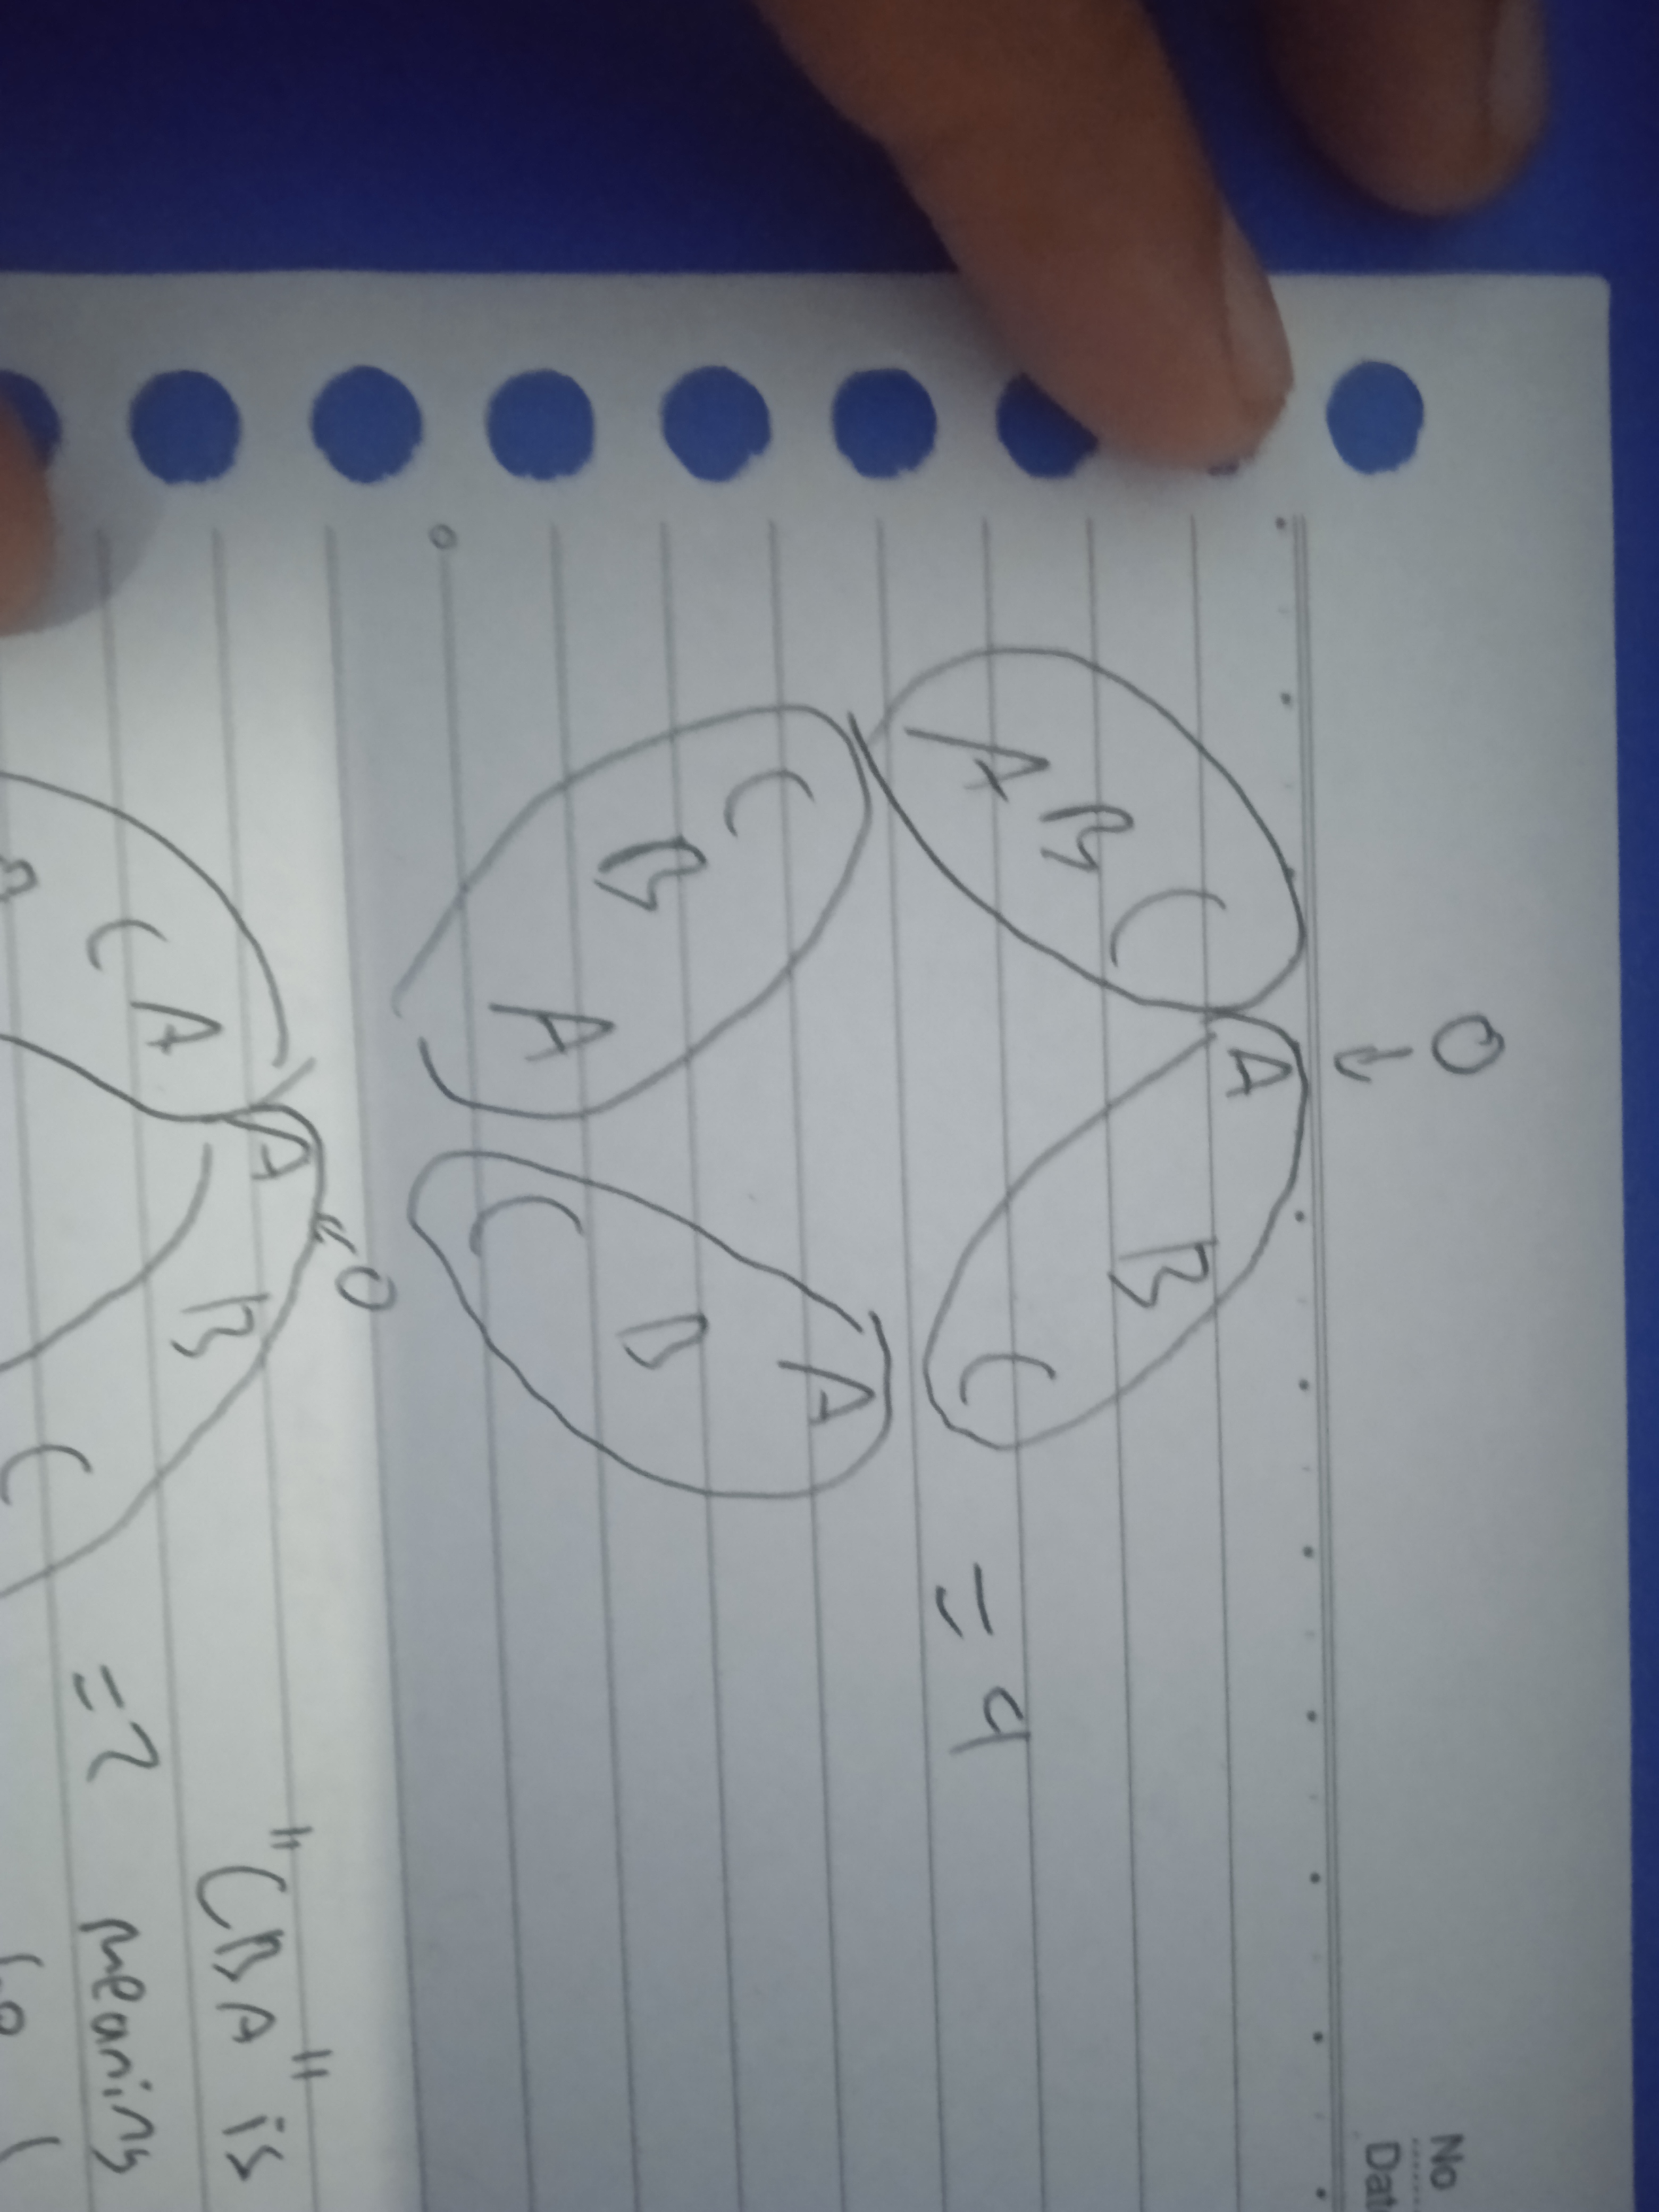 No
Dat
O
A B C
A B C
= 4
C B A
A B C
O
C A
A B C
= 2
"CBA" is
meaning